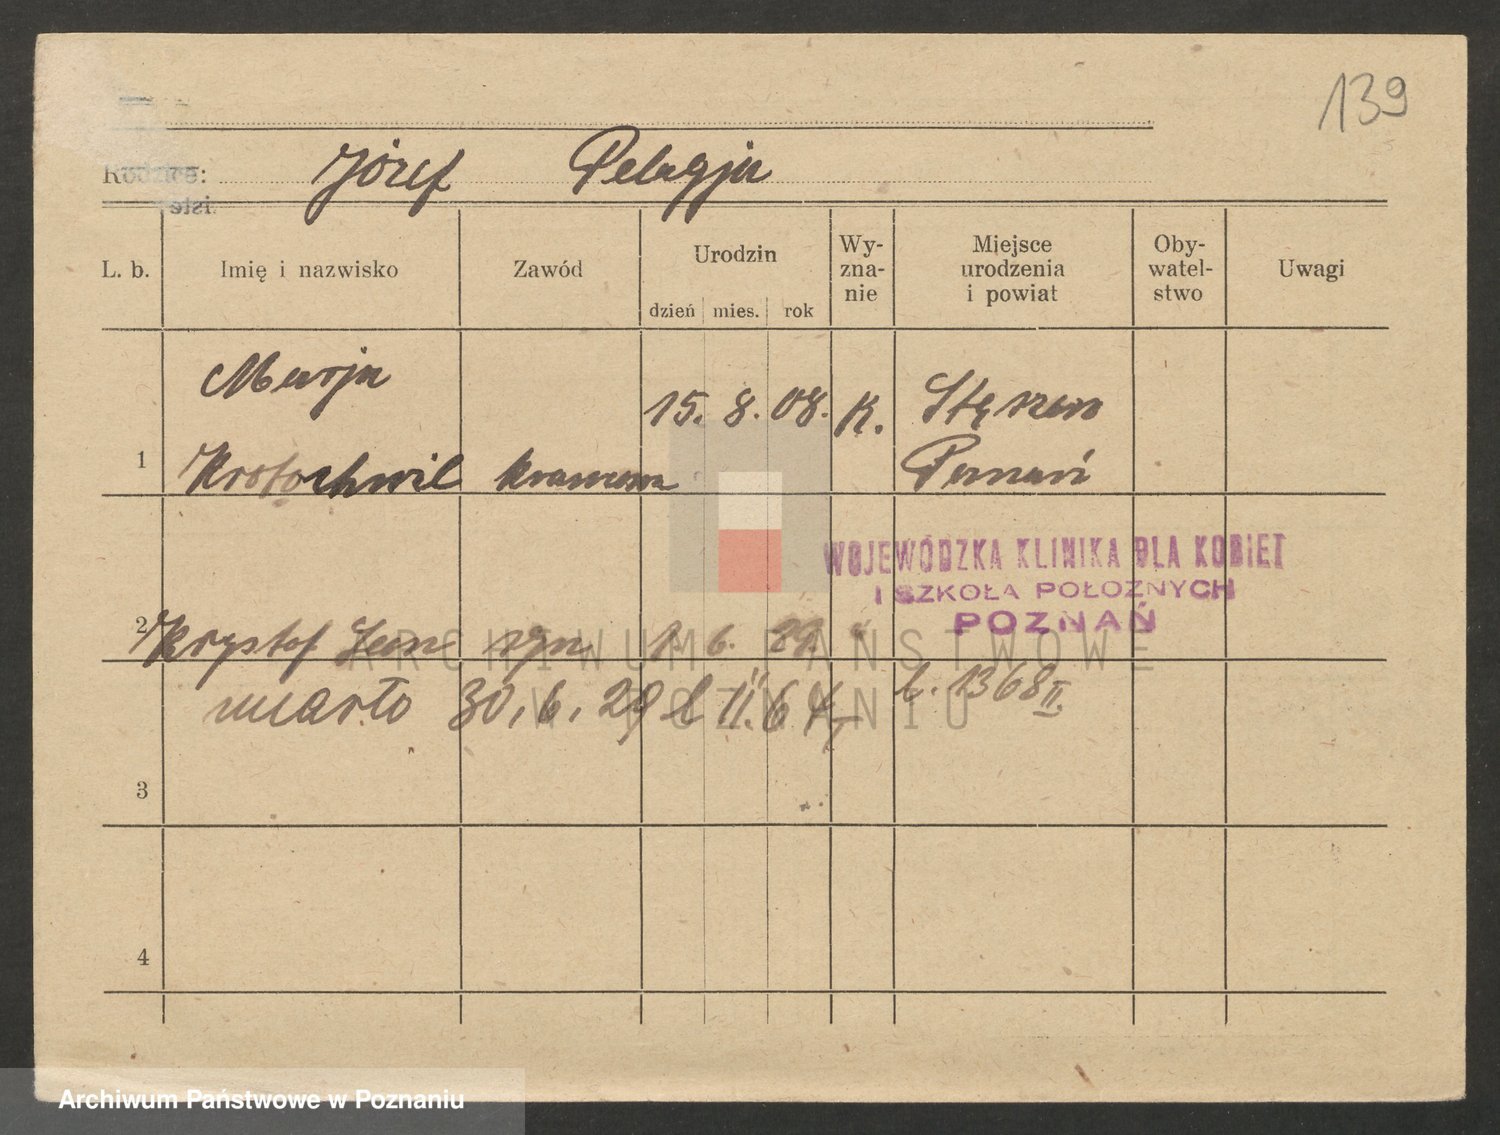 139
Rodzice: Józef Pelagja
L. b. Imię i nazwisko Zawód Urodzin dzień mies. rok Wy-zna-nie Miejsce urodzenia i powiat Oby-watel-stwo Uwagi
Marja 15. 8. 08. K. Stęszew
1 Krotochwil krawcowa Poznań
WOJEWÓDZKA KLINIKA DLA KOBIET
I SZKOŁA POŁOŻNYCH
POZNAŃ
2 Krzysztof syn 1. 6. 29.
umarło 30. 6. 29 l. 1368 II.
3
4
ARCHIWUM PAŃSTWOWE
W POZNANIU
Archiwum Państwowe w Poznaniu